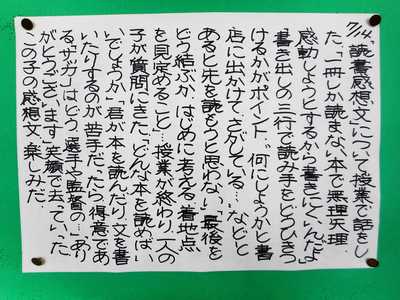 7/14、読書感想文について授業で話をし
た。「一冊しか読まない本で無理矢理
感動しようとするから書きにくいんだよ」
書き出しの三行で読み手をどうひきつ
けるかがポイント」「何にしようかと書
店に出かけて、さがしている…などと
あると先を読もうと思わない」「最後を
どう結ぶか、はじめに考える。着地点
を見定めること」…授業が終わり、一人の
子が質問にきた。「どんな本を読めばい
いでしょうか」「君が本を読んだり、文を書
いたりするのが苦手だったら、得意であ
る“サッカー”はどう。選手や監督の…」「あり
がとうございます」笑顔で去っていった。
この子の感想文、楽しみだ。